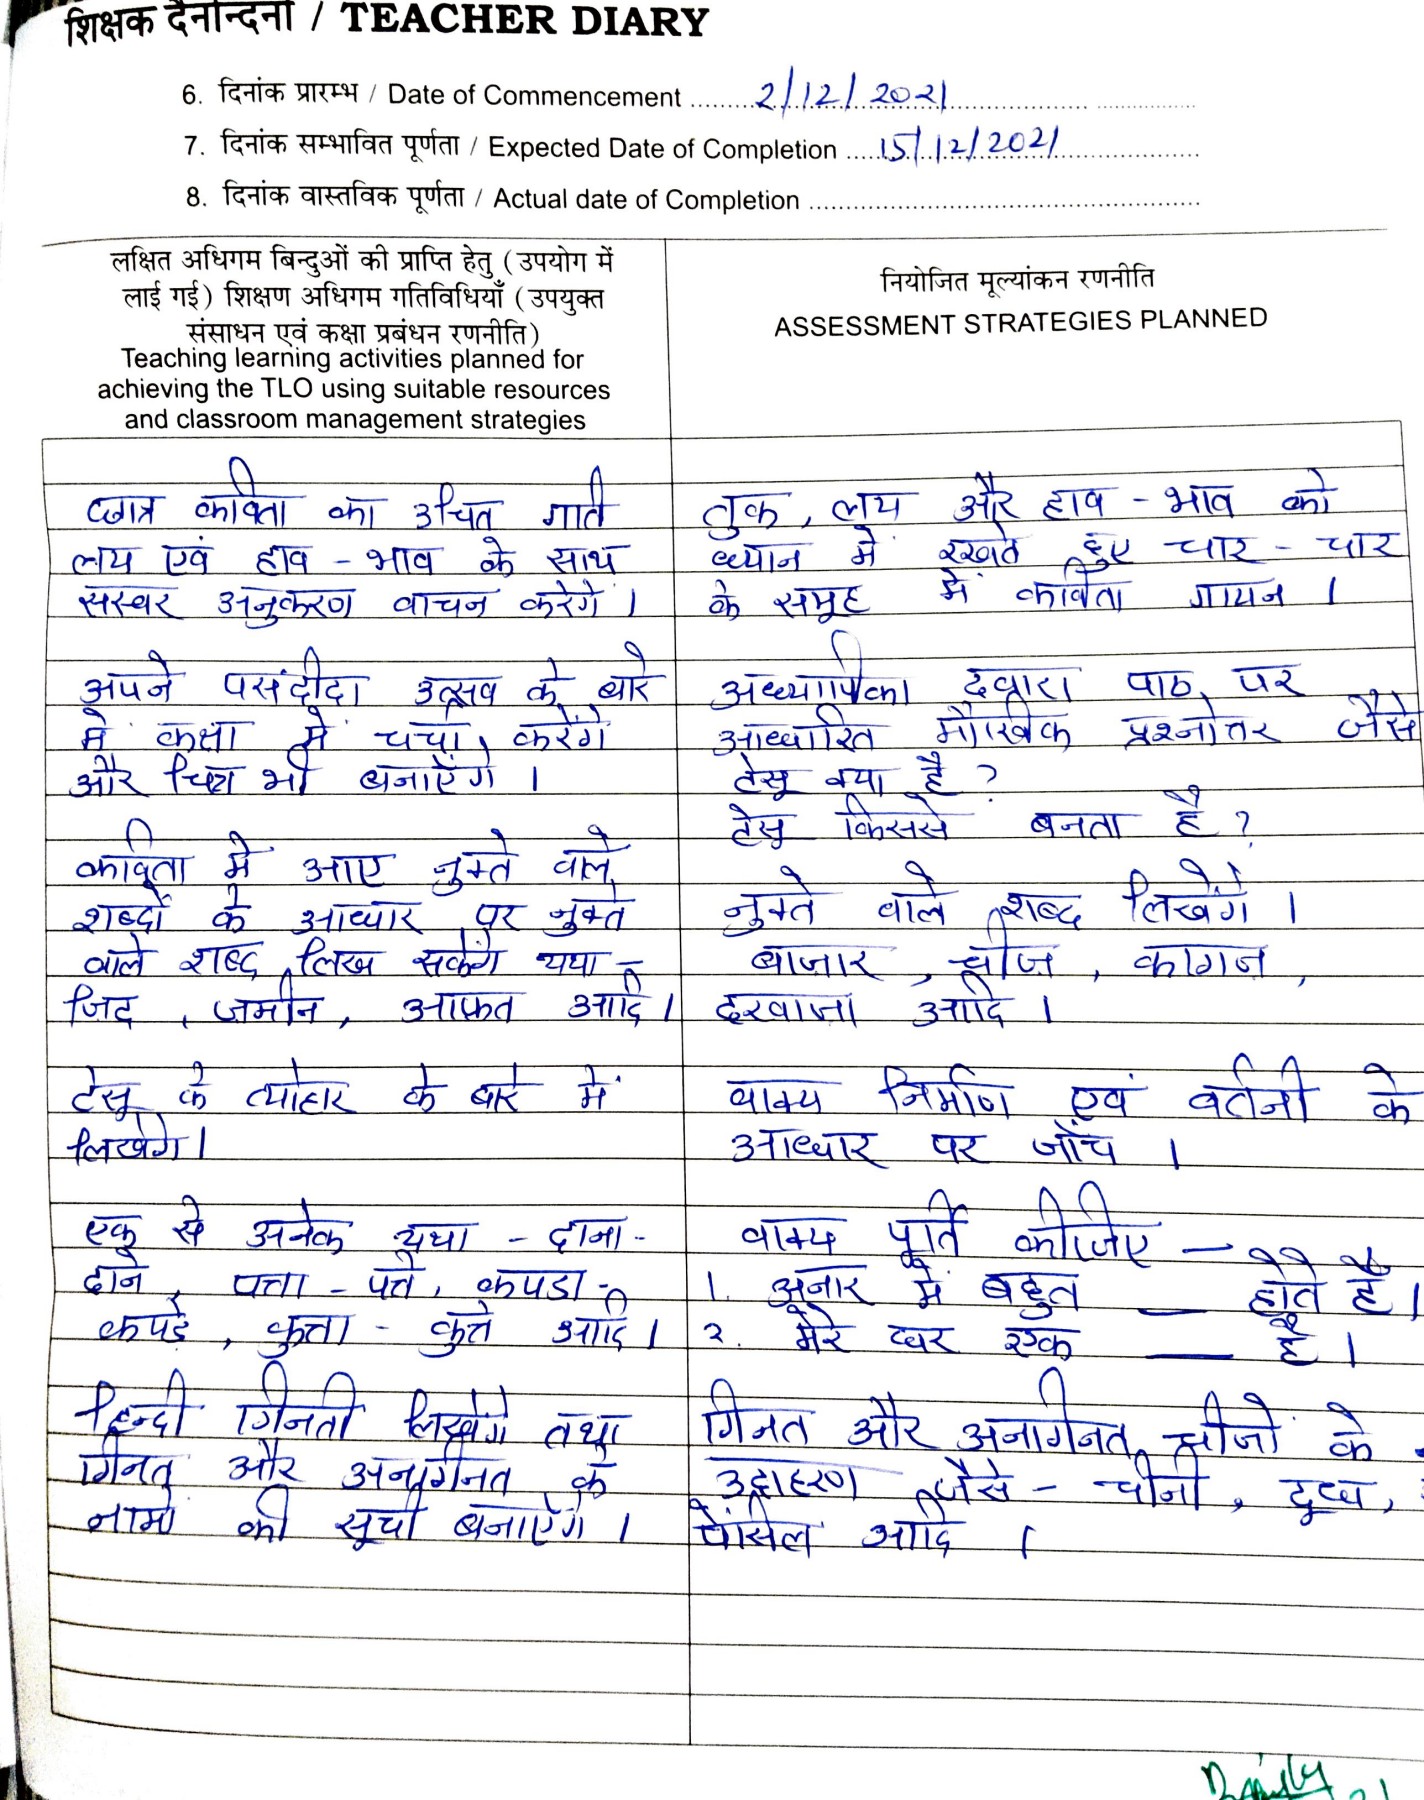 शिक्षक दैनन्दिनी / TEACHER DIARY
6. दिनांक प्रारम्भ / Date of Commencement 2/12/2021
7. दिनांक सम्भावित पूर्णता / Expected Date of Completion 15/12/2021
8. दिनांक वास्तविक पूर्णता / Actual date of Completion
लक्षित अधिगम बिन्दुओं की प्राप्ति हेतु (उपयोग में
लाई गई) शिक्षण अधिगम गतिविधियाँ (उपयुक्त
संसाधन एवं कक्षा प्रबंधन रणनीति)
Teaching learning activities planned for
achieving the TLO using suitable resources
and classroom management strategies
छात्र कविता का उचित गति
लय एवं हाव - भाव के साथ
सस्वर अनुकरण वाचन करेंगे ।
अपने पसंदीदा उत्सव के बारे
में कक्षा में चर्चा करेंगे
और चित्र भी बनाएँगे ।
कविता में आए नुक्ते वाले
शब्दों के आधार पर नुक्ते
वाले शब्द लिख सकेंगे यथा -
जिद , ज़मीन, आफ़त आदि ।
टेसू के त्योहार के बारे में
लिखेंगे ।
एक से अनेक यथा - दाना -
दाने , पत्ता - पत्ते, कपडा -
कपड़े , कुत्ता - कुत्ते आदि ।
हिन्दी गिनती लिखेंगे तथा
गिनत और अनगिनत के
नामों की सूची बनाएँगे ।
नियोजित मूल्यांकन रणनीति
ASSESSMENT STRATEGIES PLANNED
तुक , लय और हाव - भाव को
ध्यान में रखते हुए चार - चार
के समूह में कविता गायन ।
अध्यापिका द्वारा पाठ पर
आधारित मौखिक प्रश्नोत्तर जैसे
टेसू क्या है ?
टेसू किससे बनता है ?
नुक्ते वाले शब्द लिखेंगे ।
बाज़ार , चीज़ , कागज़ ,
दरवाज़ा आदि ।
वाक्य निर्माण एवं वर्तनी के
आधार पर जाँच ।
वाक्य पूर्ति कीजिए -
1. अनार में बहुत __ होते हैं ।
2. मेरे घर एक __ है ।
गिनत और अनगिनत चीजों के
उदाहरण जैसे - चीनी , दूध ,
पेंसिल आदि ।